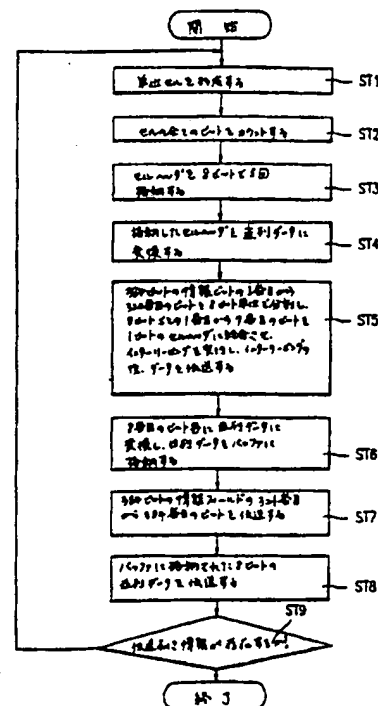 開 始
ST1
算出セルを形成する
ST2
セル内全てのビットをカウントする
ST3
セルヘッダを8ビットで5回
格納する
ST4
格納したセルヘッダを直列データに
変換する
ST5
384ビットの情報ビットの1番目から
320番目のビットを8ビット単位で分割し、
8ビットごとの1番目から7番目のビットと
1ビットのセルヘッダに結合させ、
インターリービングを実行し、インターリービングの
後、データを伝送する
ST6
8番目のビット毎に並列データに
変換し、並列データをバッファに
格納する
ST7
384ビットの情報フィールドの321番目
から384番目のビットを伝送する
ST8
バッファに格納されたビットの
並列データを伝送する
ST9
伝送すべき情報が存在するか?
終 了